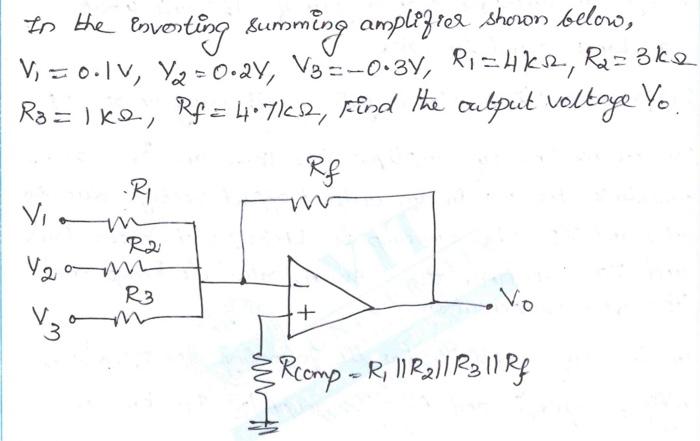 In the inverting summing amplifier shown below,
V1 = 0.1V, V2 = 0.2V, V3 = -0.3V, R1 = 4kΩ, R2 = 3kΩ
R3 = 1kΩ, Rf = 4.7kΩ, Find the output voltage Vo.
Rf
R1
V1
R2
V2
R3
V3
-
+
Vo
Rcomp = R1 || R2 || R3 || Rf
VIT